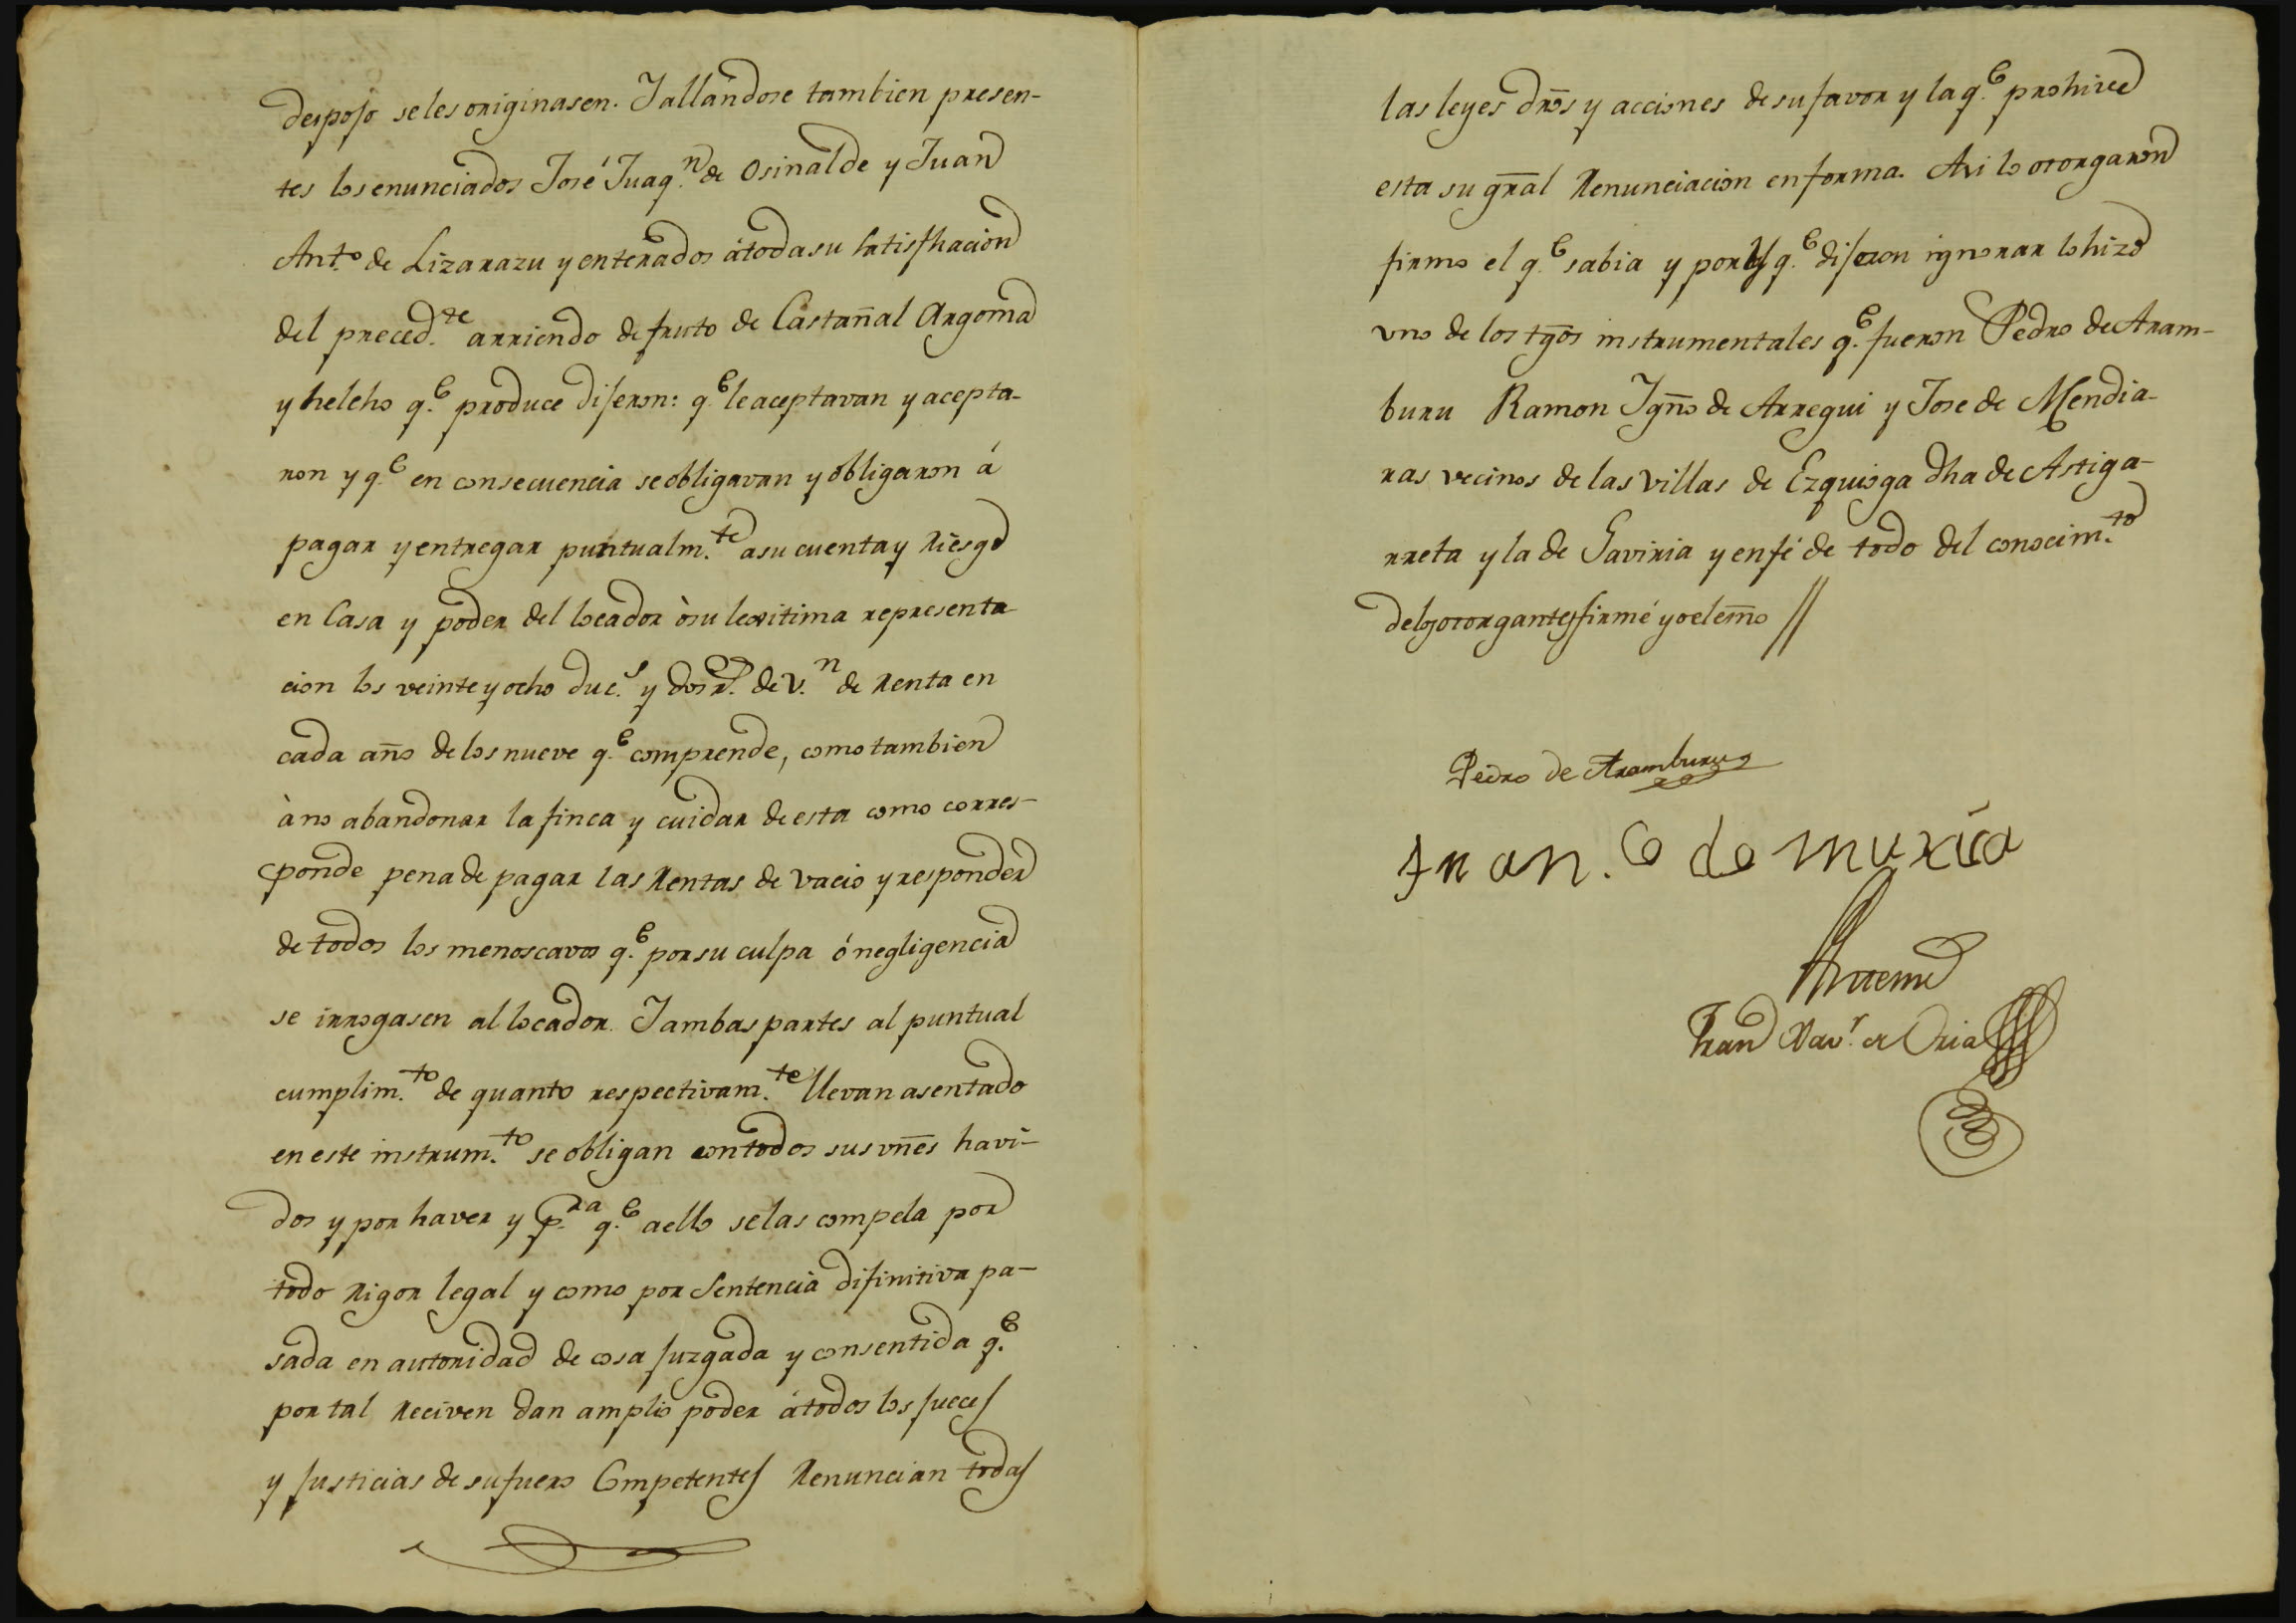 despojo se les originasen. Jallandose tambien presen-
tes los enunciados José Juaq.n de Osinalde y Juan
Ant.o de Lizarazu y enterados á toda su satisfhacion
del preced.te arriendo de fruto de Castañal Argoma
y helcho q.e produce dijeron: q.e le aceptavan y acepta-
ron y q.e en consecuencia se obligavan y obligaron á
pagar y entregar puntualm.te a su cuenta y Riesgo
en Casa y poder del locador ò su lexitima representa-
cion los veinte y ocho duc.s y dos r.s de v.n de Renta en
cada año de los nueve q.e comprende, como tambien
à no abandonar la finca y cuidar de esta como corres-
ponde pena de pagar las Rentas de vacio y responder
de todos los menoscavos q.e por su culpa ó negligencia
se irrogasen al locador. Jambas partes al puntual
cumplim.to de quanto respectivam.te llevan asentado
en este instrum.to se obligan con todos sus vnēs havi-
dos y por haver y p.ra q.e a ello se las compela por
todo Rigor legal y como por Sentencia difinitiva pa-
sada en autoridad de cosa juzgada y consentida q.e
por tal Reciven dan amplio poder á todos los jueces
y justicias de su fuero Competentes Renuncian todas
las leyes dr̄os y acciones de su favor y la q.e prohive
esta su gr̄al Renunciacion en forma. Asi lo otorgaron
firmo el q.e sabia y por los q.e dijeron ignorar lo hizo
vno de los tḡos instrumentales q.e fueron Pedro de Aram-
buru Ramon Ygn̄o de Arregui y Jose de Mendia-
ras vecinos de las villas de Ezquioga dha de Astiga-
rreta y la de Gaviria y en fé de todo del conocim.to
de los otorgantes firmé yo el em̄o //
Pedro de Aramburu
Fran.co de muxica
Antemi
Fran Xav.r de Oria